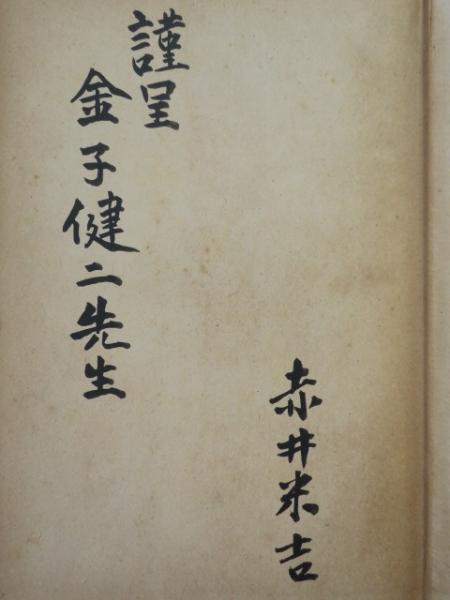 謹呈
金子健二先生
赤井米吉